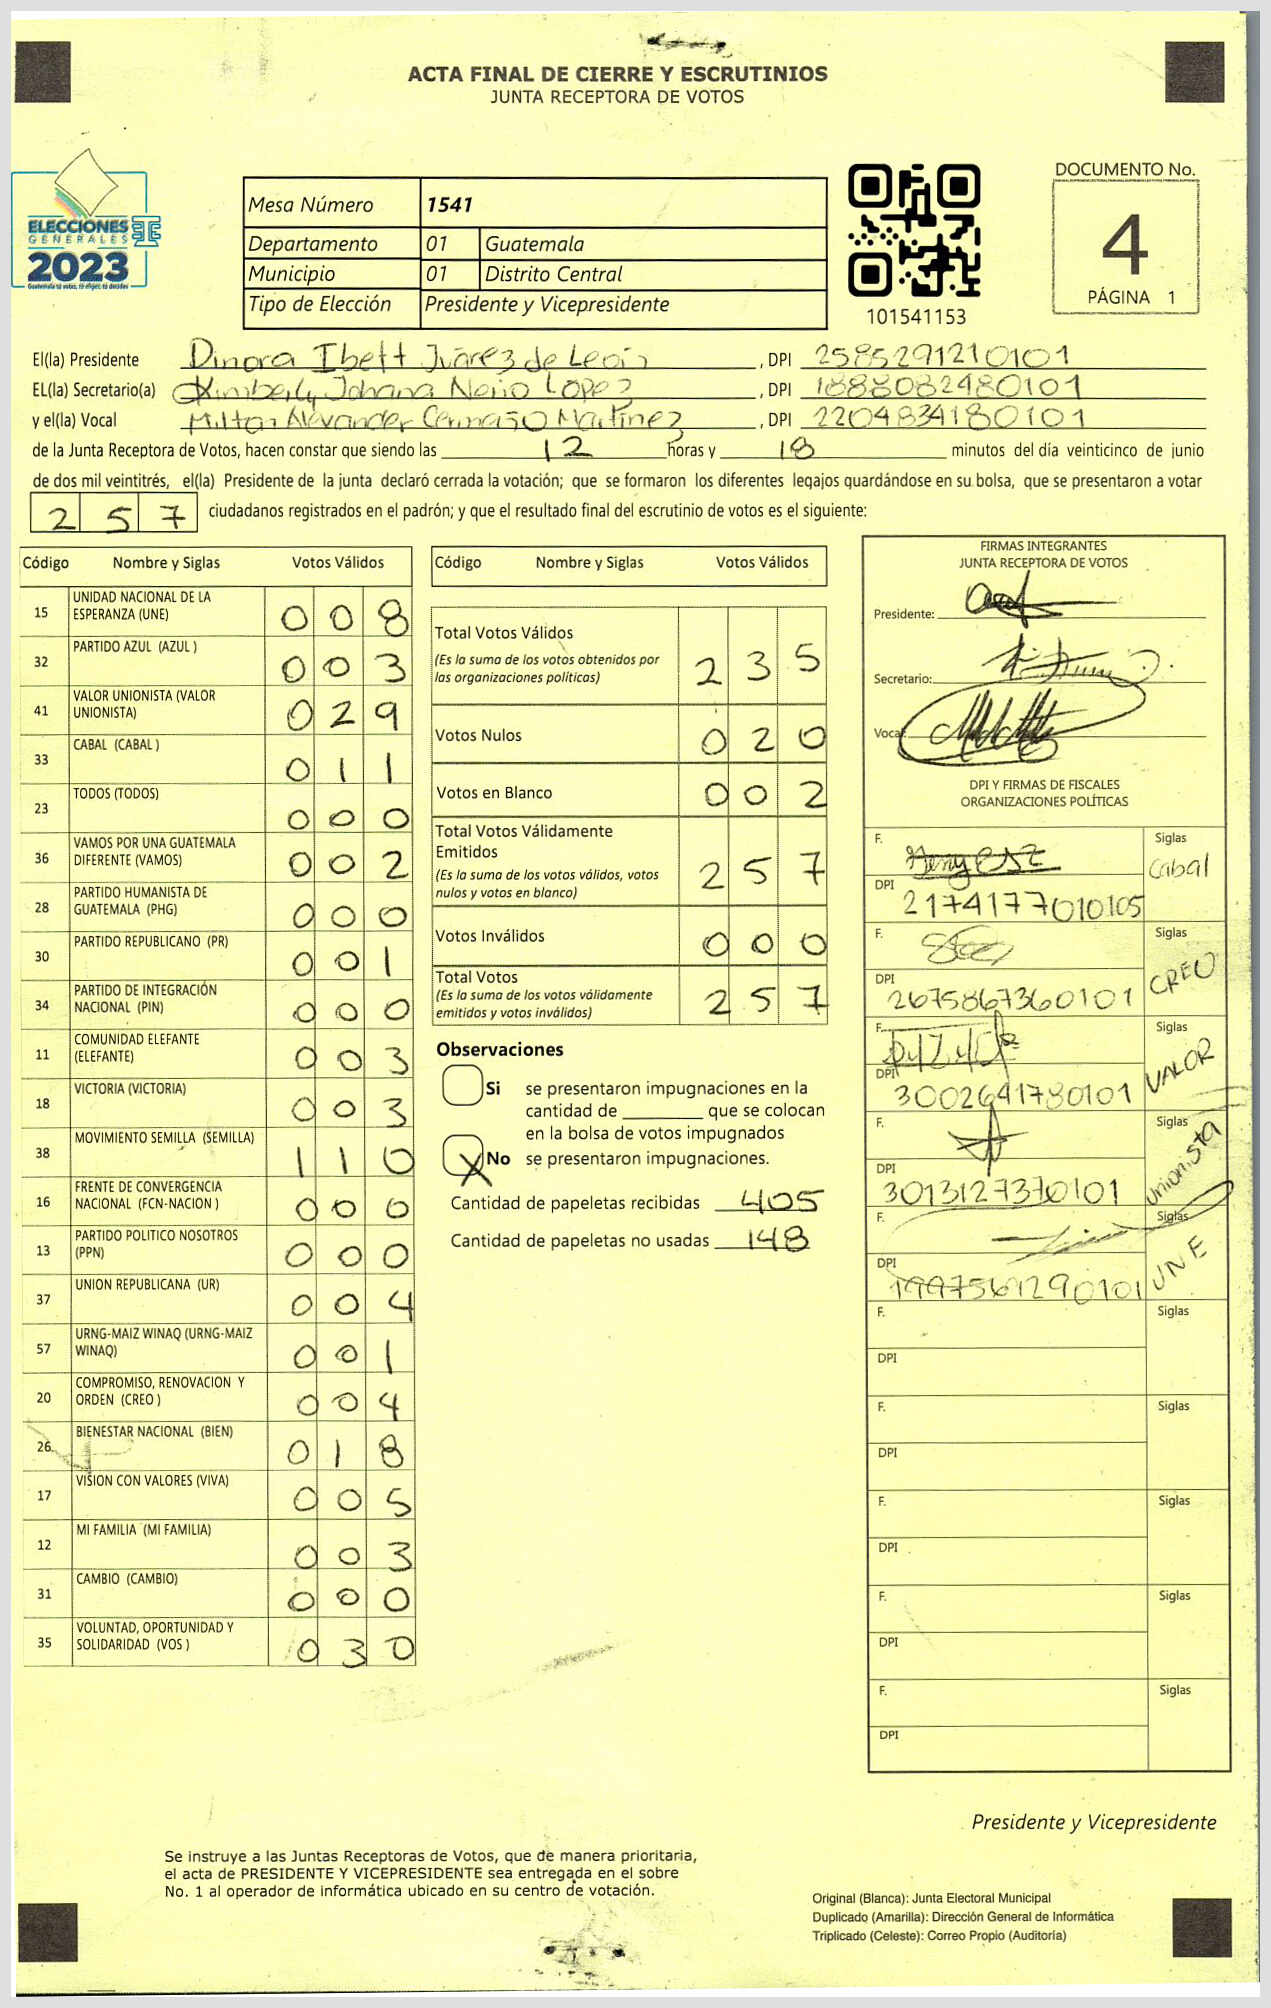 ACTA FINAL DE CIERRE Y ESCRUTINIOS
JUNTA RECEPTORA DE VOTOS
ELECCIONES
GENERALES
2023
Mesa Número 1541
Departamento 01 Guatemala
Municipio 01 Distrito Central
Tipo de Elección Presidente y Vicepresidente
101541153
DOCUMENTO No.
4
PÁGINA 1
El(la) Presidente Dinora Ibett Juárez de León, DPI 2585291210101
EL(la) Secretario(a) Kimberly Johana López, DPI 1888082480101
y el(la) Vocal Milton Alexander Martínez, DPI 2204834180101
de la Junta Receptora de Votos, hacen constar que siendo las 12 horas y 18 minutos del día veinticinco de junio
de dos mil veintitrés, el(la) Presidente de la junta declaró cerrada la votación; que se formaron los diferentes legajos guardándose en su bolsa, que se presentaron a votar
257 ciudadanos registrados en el padrón; y que el resultado final del escrutinio de votos es el siguiente:
Código Nombre y Siglas Votos Válidos
15 UNIDAD NACIONAL DE LA ESPERANZA (UNE) 008
32 PARTIDO AZUL (AZUL ) 003
41 VALOR UNIONISTA (VALOR UNIONISTA) 029
33 CABAL (CABAL ) 011
23 TODOS (TODOS) 000
36 VAMOS POR UNA GUATEMALA DIFERENTE (VAMOS) 002
28 PARTIDO HUMANISTA DE GUATEMALA (PHG) 000
30 PARTIDO REPUBLICANO (PR) 001
34 PARTIDO DE INTEGRACIÓN NACIONAL (PIN) 000
11 COMUNIDAD ELEFANTE (ELEFANTE) 003
18 VICTORIA (VICTORIA) 003
38 MOVIMIENTO SEMILLA (SEMILLA) 110
16 FRENTE DE CONVERGENCIA NACIONAL (FCN-NACION ) 000
13 PARTIDO POLITICO NOSOTROS (PPN) 000
37 UNION REPUBLICANA (UR) 004
57 URNG-MAIZ WINAQ (URNG-MAIZ WINAQ) 001
20 COMPROMISO, RENOVACION Y ORDEN (CREO ) 004
26 BIENESTAR NACIONAL (BIEN) 018
17 VISION CON VALORES (VIVA) 005
12 MI FAMILIA (MI FAMILIA) 003
31 CAMBIO (CAMBIO) 000
35 VOLUNTAD, OPORTUNIDAD Y SOLIDARIDAD (VOS ) 030
Código Nombre y Siglas Votos Válidos
Total Votos Válidos 235
(Es la suma de los votos obtenidos por las organizaciones politicas)
Votos Nulos 020
Votos en Blanco 002
Total Votos Válidamente Emitidos 257
(Es la suma de los votos válidos, votos nulos y votos en blanco)
Votos Inválidos 000
Total Votos 257
(Es la suma de los votos válidamente emitidos y votos inválidos)
Observaciones
Si se presentaron impugnaciones en la
cantidad de ________ que se colocan
en la bolsa de votos impugnados
X No se presentaron impugnaciones.
Cantidad de papeletas recibidas 405
Cantidad de papeletas no usadas 148
FIRMAS INTEGRANTES
JUNTA RECEPTORA DE VOTOS
Presidente:
Secretario:
Vocal:
DPI Y FIRMAS DE FISCALES
ORGANIZACIONES POLÍTICAS
F. Siglas Cabal
DPI 2174177010105
F. Siglas CREO
DPI 2675867360101
F. Siglas VALOR
DPI 3002641780101
F. Siglas Unionista
DPI 3013127370101
F. Siglas UNE
DPI 1997561290101
F. Siglas
DPI
F. Siglas
DPI
F. Siglas
DPI
F. Siglas
DPI
F. Siglas
DPI
Presidente y Vicepresidente
Se instruye a las Juntas Receptoras de Votos, que de manera prioritaria,
el acta de PRESIDENTE Y VICEPRESIDENTE sea entregada en el sobre
No. 1 al operador de informática ubicado en su centro de votación.
Original (Blanca): Junta Electoral Municipal
Duplicado (Amarilla): Dirección General de Informática
Triplicado (Celeste): Correo Propio (Auditoría)